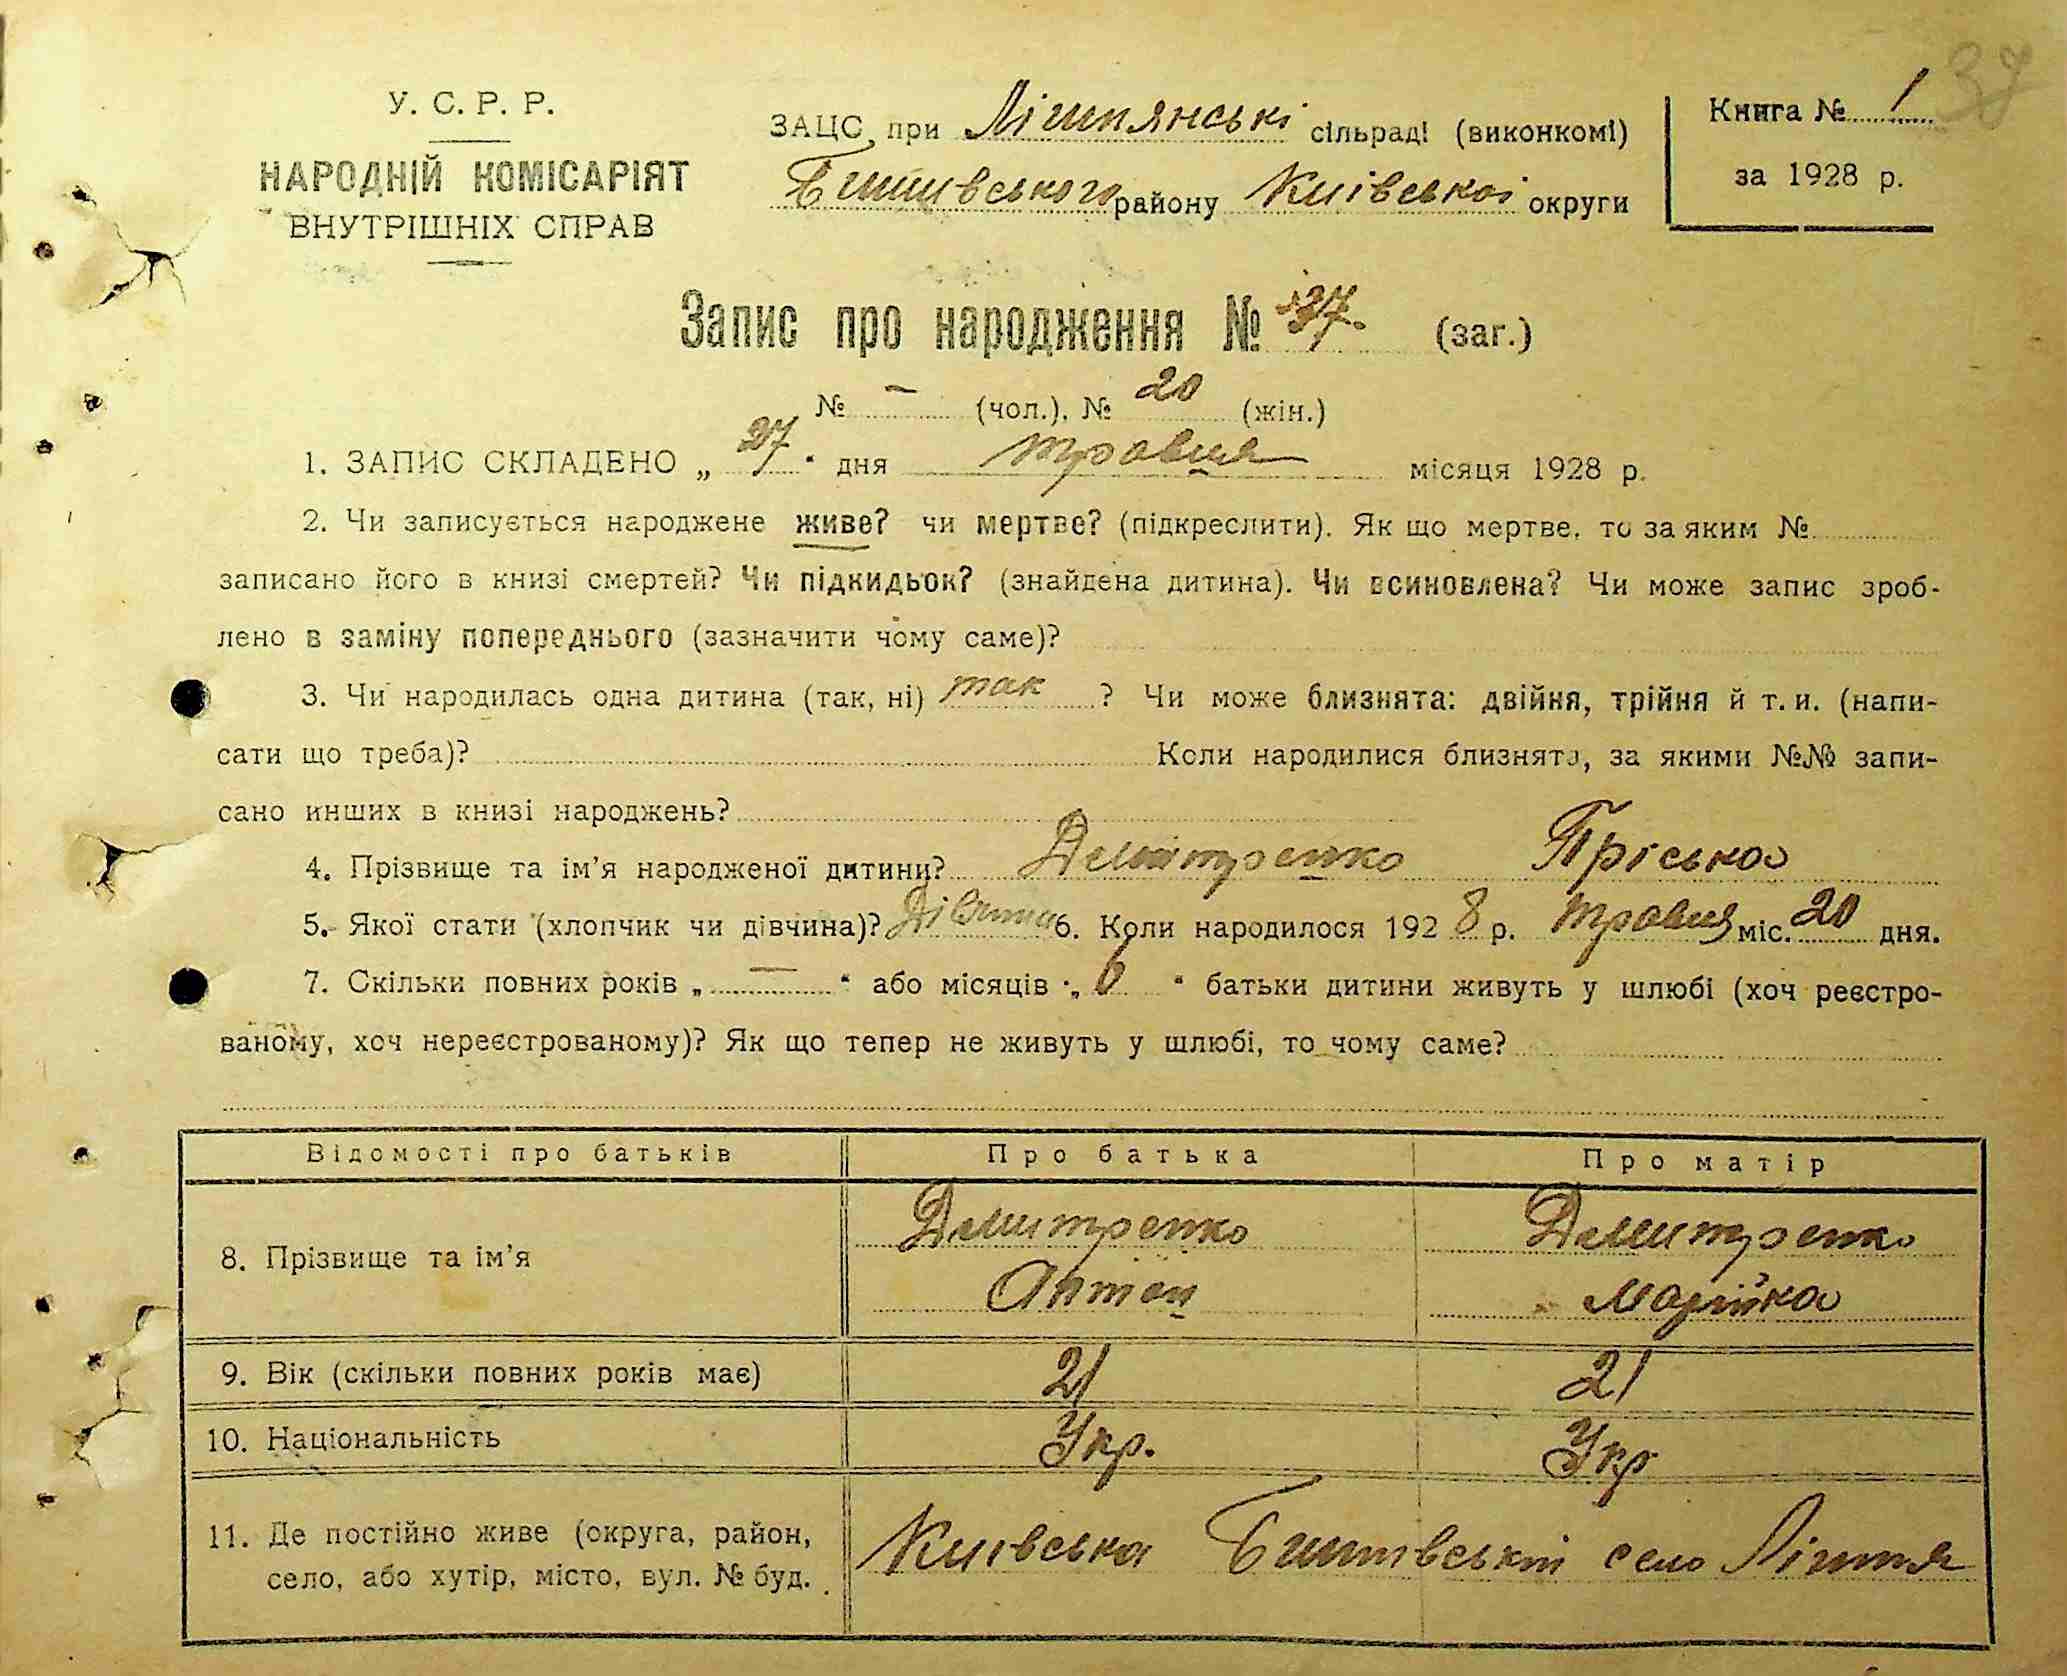 37
У. С. Р. Р.
НАРОДНІЙ КОМІСАРІЯТ
ВНУТРІШНІХ СПРАВ
ЗАЦС при Лішнянські сільраді (виконкомі)
Бишівського району Киівськоі округи
Книга № 1
за 1928 р.
Запис про народження № 37. (заг.)
№ — (чол.), № 20 (жін.)
1. ЗАПИС СКЛАДЕНО „ 27 “ дня травня місяця 1928 р.
2. Чи записується народжене живе? чи мертве? (підкреслити). Як що мертве, то за яким №
записано його в книзі смертей? Чи підкидьок? (знайдена дитина). Чи всиновлена? Чи може запис зроб-
лено в заміну попереднього (зазначити чому саме)?
3. Чи народилась одна дитина (так, ні) так ? Чи може близнята: двійня, трійня й т. и. (напи-
сати що треба)? Коли народилися близнята, за якими №№ запи-
сано инших в книзі народжень?
4. Прізвище та ім’я народженої дитини? Демитренко Пріська
5. Якої стати (хлопчик чи дівчина)? Дівчина 6. Коли народилося 1928 р. травня міс. 20 дня.
7. Скільки повних років „ — “ або місяців „ 6 “ батьки дитини живуть у шлюбі (хоч реєстро-
ваному, хоч нереєстрованому)? Як що тепер не живуть у шлюбі, то чому саме?
Відомості про батьків Про батька Про матір
8. Прізвище та ім’я Демитренко Антон Демитренко Марійка
9. Вік (скільки повних років має) 21 21
10. Національність Укр. Укр
11. Де постійно живе (округа, район, село, або хутір, місто, вул. № буд. Киівська Бишівський село Лішня